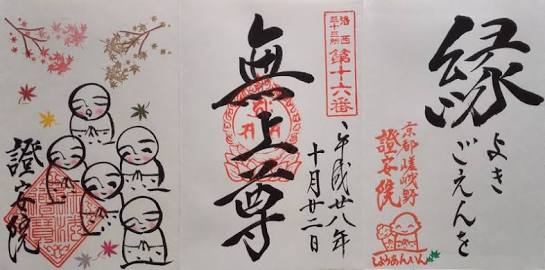 縁
よき
ごえんを
京都嵯峨野
證安院
しょうあんいん
洛西
三十三所
第十六番
無上尊
平成廿八年
十月廿二日
證安院